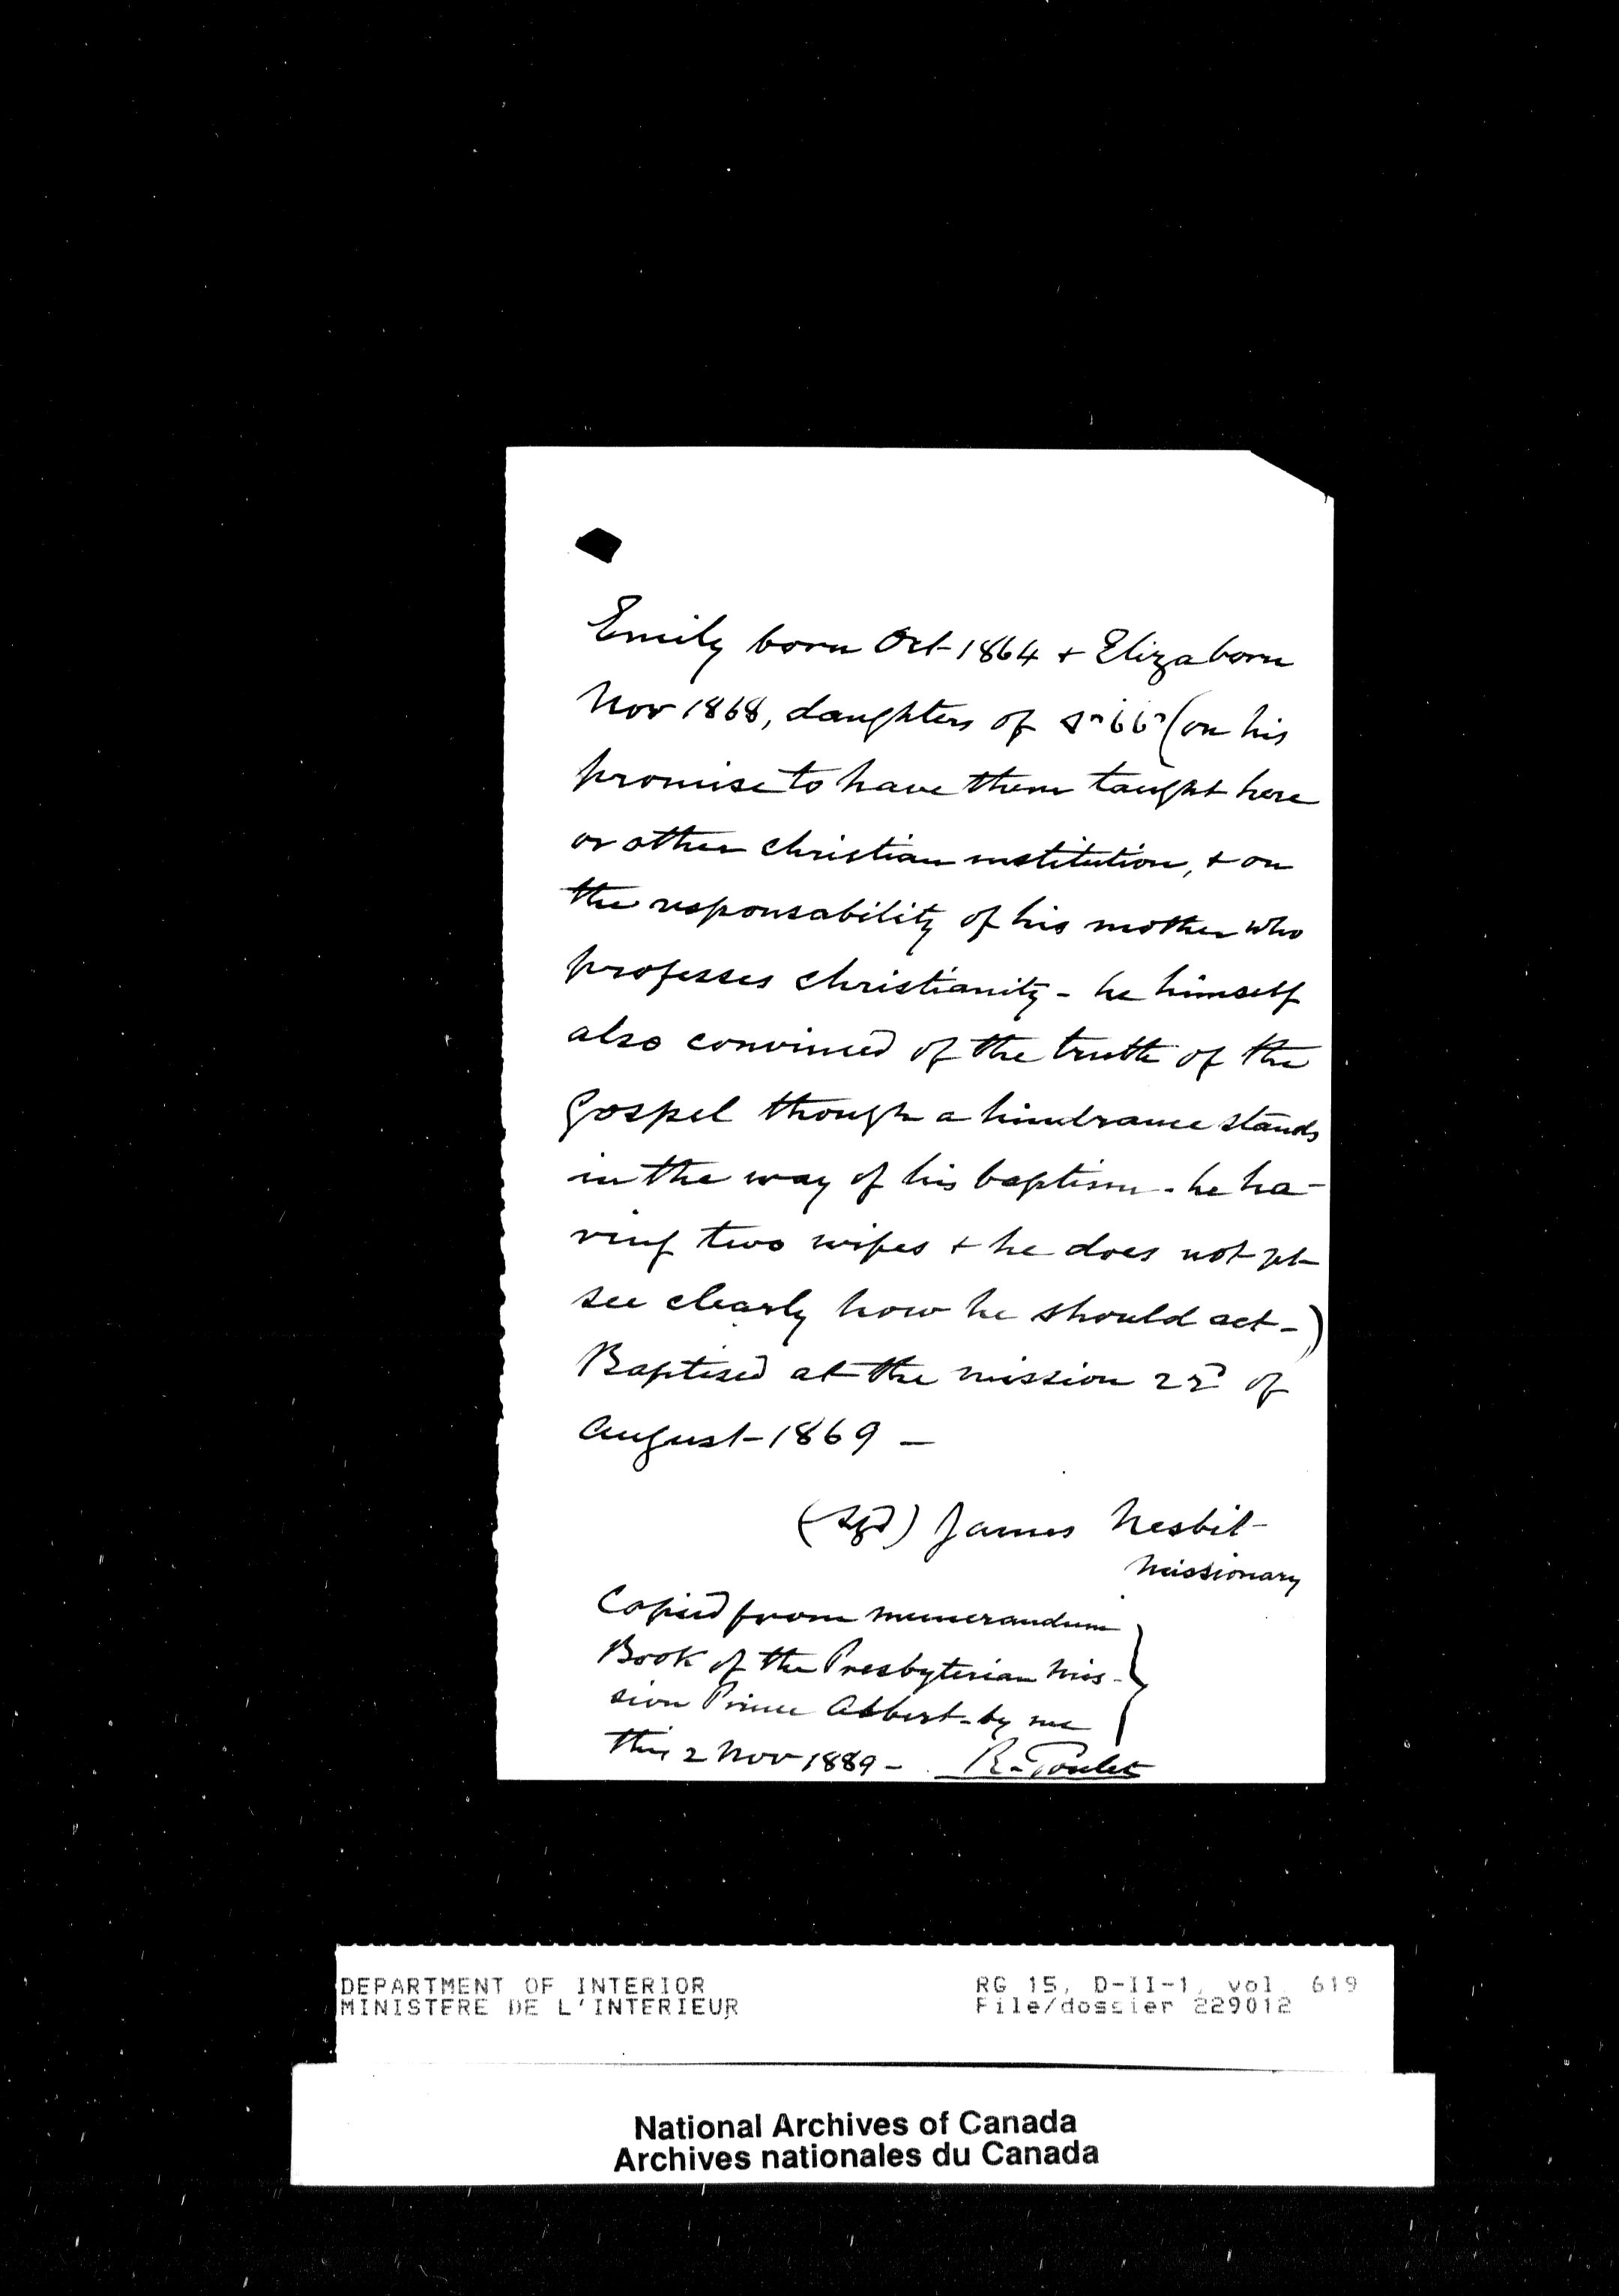 Emily born Oct 1864 + Eliza born
Nov 1868, daughters of (on his
promise to have them taught here
or other christian institution, + on
the responsability of his mother who
professes christianity - he himself
also convinced of the truth of the
Gospel though a hindrance stands
in the way of his baptism - he ha-
ving two wifes + he does not yet
see clearly how he should act -)
Baptised at the mission 22d of
August 1869 -
(sgd) James Nesbit
Missionary
Copied from memerandum
Book of the Presbyterian Mis-
sion Prince Albert - by me
this 2 Nov 1889 -
DEPARTMENT OF INTERIOR
MINISTERE DE L'INTERIEUR
RG 15, D-II-1, vol 619
File/dossier 229012
National Archives of Canada
Archives nationales du Canada